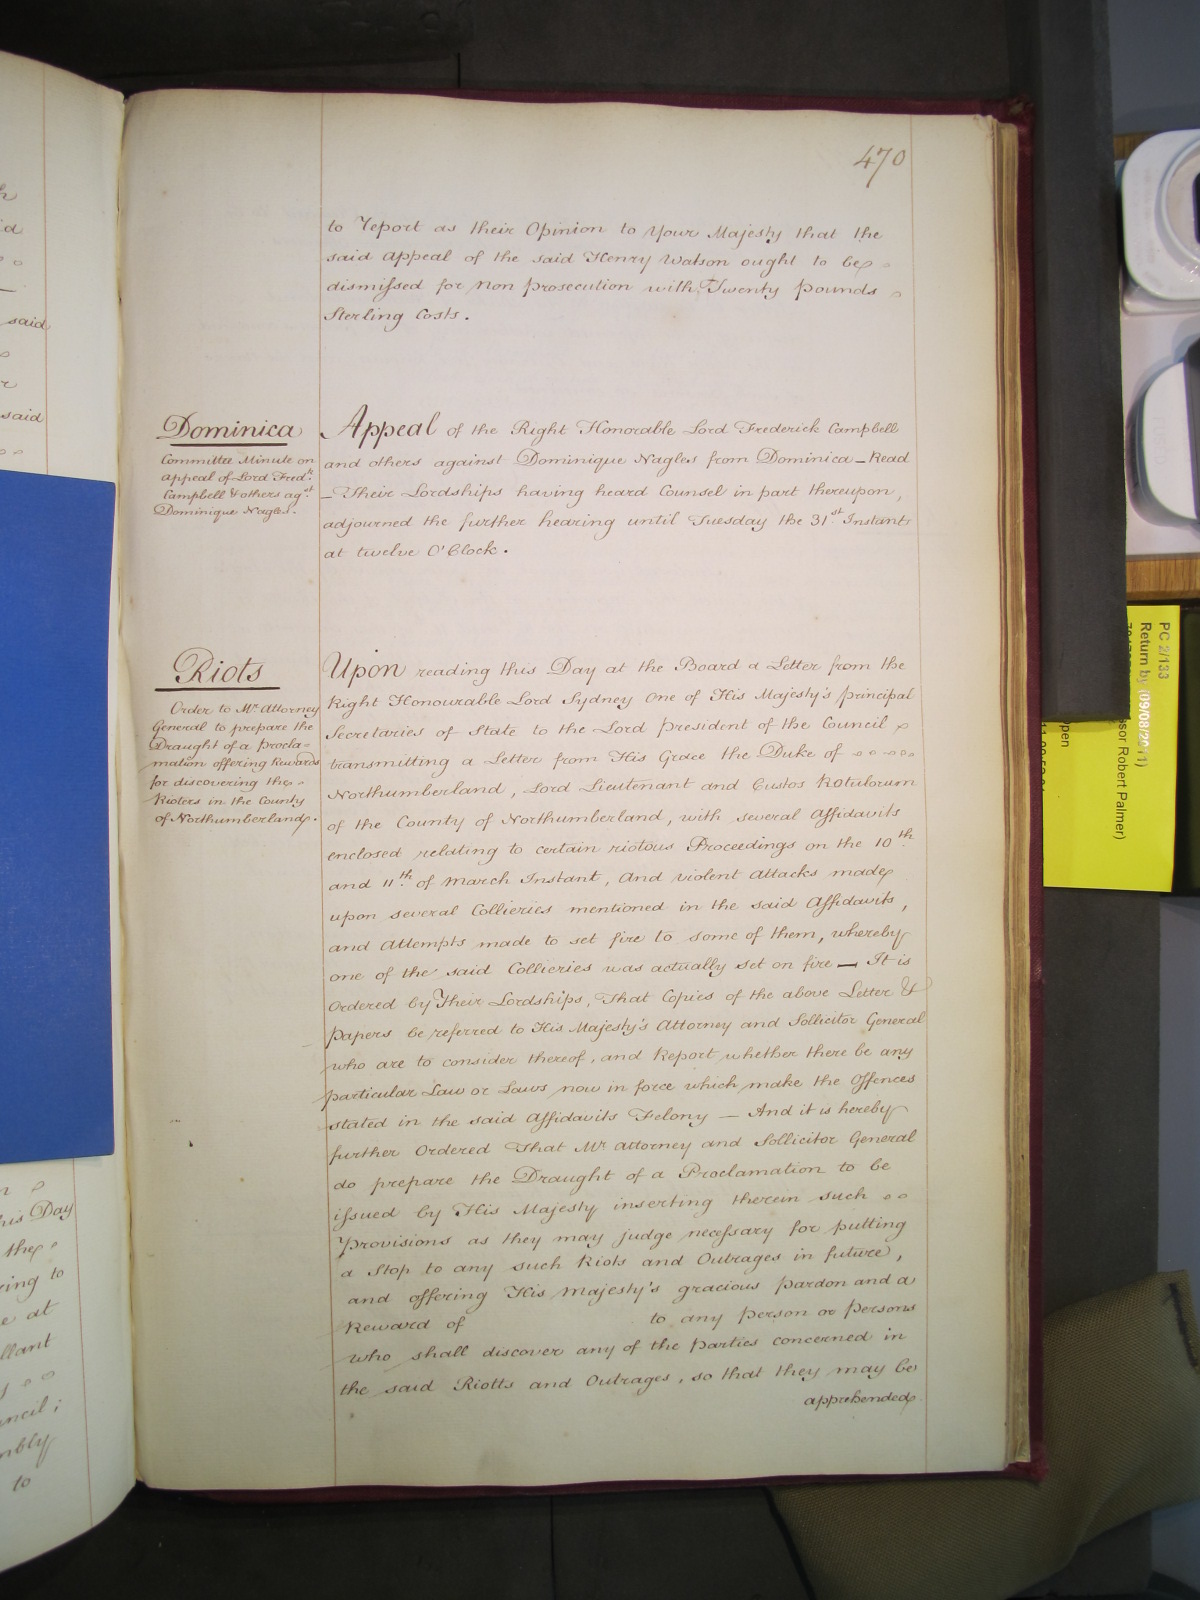 470
to report as their Opinion to Your Majesty that the
said appeal of the said Henry Watson ought to be
dismissed for Non prosecution with Twenty pounds
Sterling Costs.
Dominica
Committee Minute on
appeal of Lord Fred.k
Campbell & others ag.st
Dominique Nagles.
Appeal of the Right Honorable Lord Frederick Campbell
and others against Dominique Nagles from Dominica — Read
— Their Lordships having heard Counsel in part thereupon,
adjourned the further hearing until Tuesday the 31st Instant
at twelve O'Clock.
Riots
Order to Mr. Attorney
General to prepare the
Draught of a Procla=
mation offering Rewards
for discovering the
Rioters in the County
of Northumberland.
Upon reading this Day at the Board a Letter from the
Right Honourable Lord Sydney One of His Majesty's principal
Secretaries of State to the Lord President of the Council
transmitting a Letter from His Grace the Duke of
Northumberland, Lord Lieutenant and Custos Rotulorum
of the County of Northumberland, with several Affidavits
enclosed relating to certain riotous Proceedings on the 10th
and 11th of March Instant, and violent Attacks made
upon several Collieries mentioned in the said Affidavits,
and Attempts made to set fire to some of them, whereby
one of the said Collieries was actually set on fire — It is
Ordered by Their Lordships, That Copies of the above Letter &
Papers be referred to His Majesty's Attorney and Sollicitor General
who are to consider thereof, and Report whether there be any
particular Law or Laws now in force which make the Offences
stated in the said Affidavits Felony — And it is hereby
further Ordered That Mr. Attorney and Sollicitor General
do prepare the Draught of a Proclamation to be
issued by His Majesty inserting therein such
Provisions as they may judge necessary for putting
a Stop to any such Riots and Outrages in future,
and offering His Majesty's gracious Pardon and a
Reward of to any Person or Persons
who shall discover any of the Parties concerned in
the said Riotts and Outrages, so that they may be
apprehended
said
said
his Day
the
ring to
e at
llant
uncil;
mbly
to
PC 2/133
Return by (09/08/2011)
sor Robert Palmer)
pen